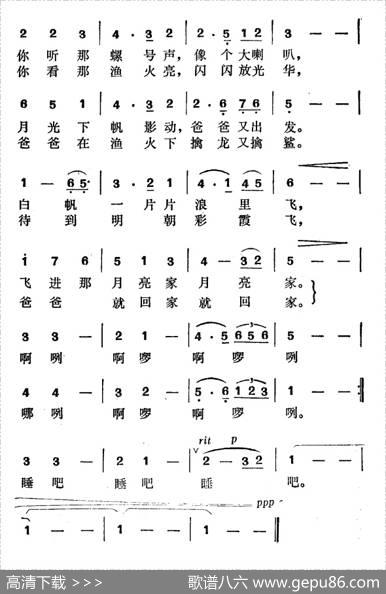 2 2 3 | 4 · 3 2 | 2 · 5 1 2 | 3 — — |
你 听 那 螺 号 声，像 个 大 喇 叭，
你 看 那 渔 火 亮，闪 闪 放 光 华，
6 5 1 | 4 · 3 2 | 2 · 6 7 6 | 5 — — |
月 光 下 帆 影 动，爸 爸 又 出 发。
爸 爸 在 渔 火 下 擒 龙 又 擒 鲨。
1 — 6 5 | 3 · 2 1 | 4 · 1 4 5 | 6 — — |
白 帆 一 片 片 浪 里 飞，
待 到 明 朝 彩 霞 飞，
1 7 6 | 5 1 3 | 4 — 3 2 | 5 — — |
飞 进 那 月 亮 家 月 亮 家。
爸 爸 就 回 家 就 回 家。
3 3 — | 2 1 — | 4 · 5 6 5 6 | 5 — — |
啊 咧 啊 啰 啊 啰 咧
4 4 — | 3 2 — | 5 · 6 1 2 3 | 1 — — :||
哪 咧 啊 啰 啊 啰 咧。
rit p
3 3 — | 2 1 — | 2 — 3 2 | 1 — — |
睡 吧 睡 吧 睡 吧。
ppp
1 — — | 1 — — | 1 — — | 1 — — ||
高清下载 >>> 歌谱八六 www.gepu86.com